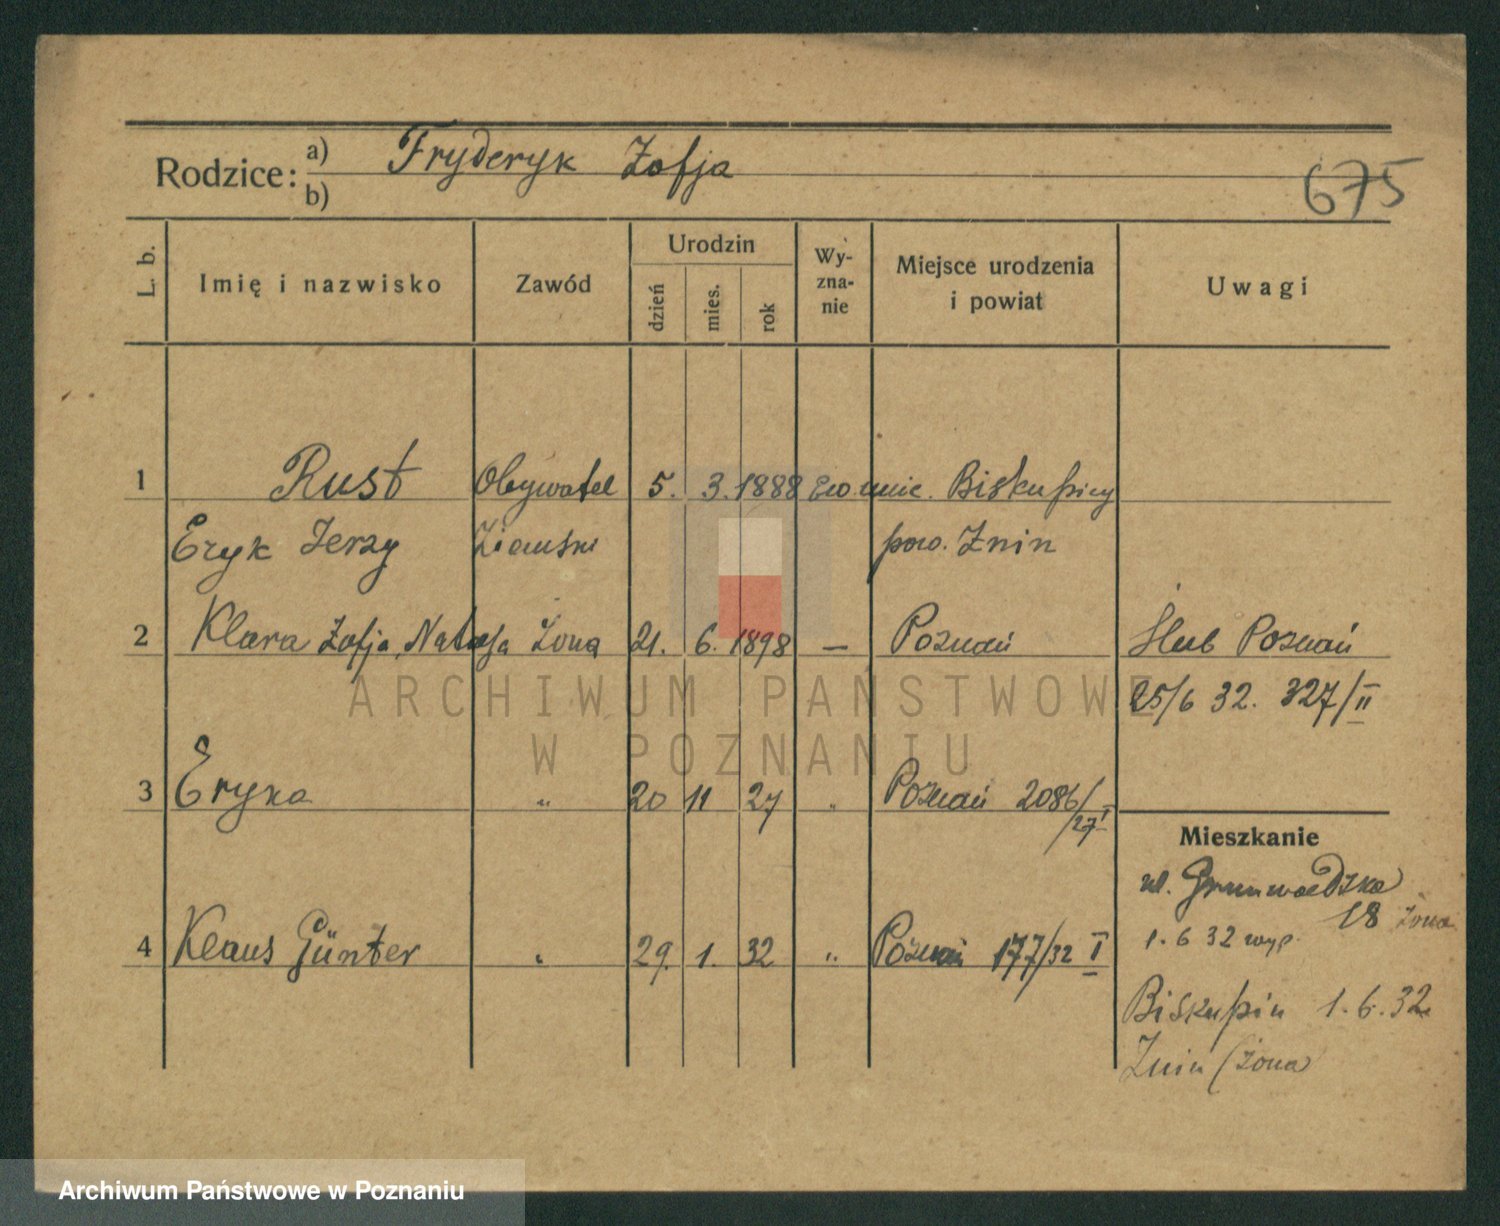 Rodzice: a) Fryderyk Zofja
b)
675
L. b. Imię i nazwisko Zawód Urodzin dzień mies. rok Wy-zna-nie Miejsce urodzenia i powiat Uwagi
1 Rust Obywatel 5. 3. 1888 Ew. unic. Biskupiny
Eryk Jerzy Ziemski pow. Żnin
2 Klara Zofja, Natalja żona 21. 6. 1898 — Poznań Ślub Poznań
25/6 32. 327/II
3 Eryka " 20 11 27 " Poznań 2086/I
/27
Mieszkanie
ul. Grunwaldzka
18 żona
1.6 32 wyp.
4 Klaus Günter " 29. 1. 32 " Poznań 177/32 I
Biskupin 1.6.32
Żnin (żona)
ARCHIWUM PAŃSTWOWE
W POZNANIU
Archiwum Państwowe w Poznaniu